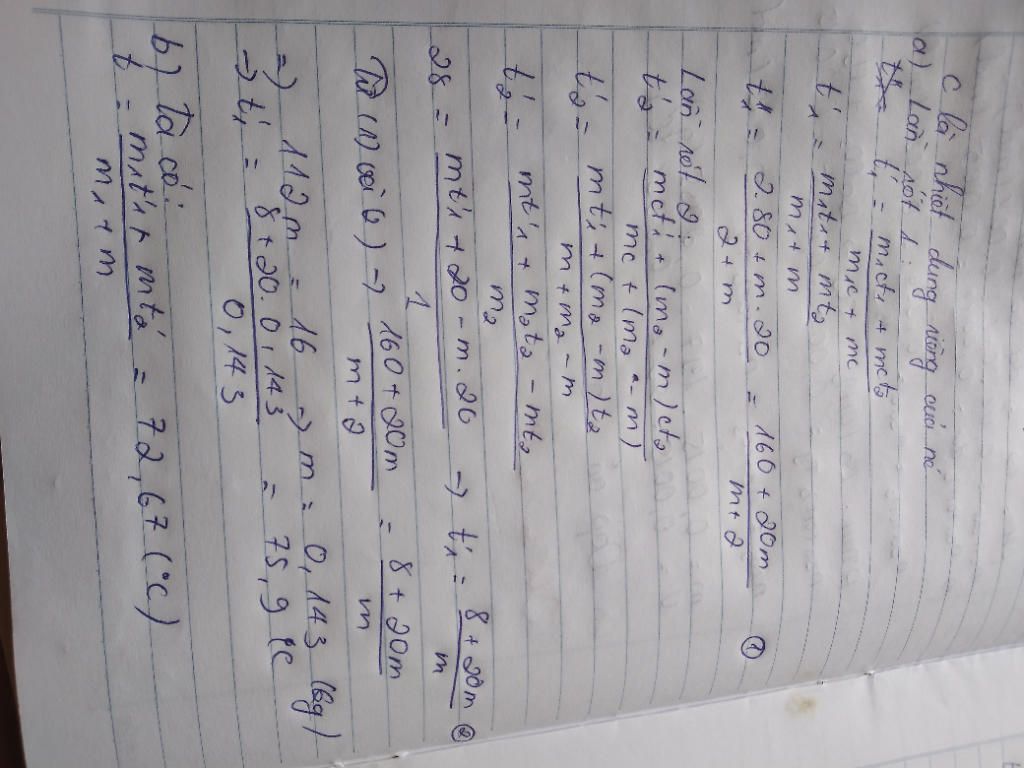 c là nhiệt dung riêng của nó
a) Lần rót 1:
t'₁ = m₁ct₁ + mct₂ / m₁c + mc
t'₁ = m₁t₁ + mt₂ / m₁ + m
t'1 = 2.80 + m.20 / 2 + m = 160 + 20m / m+2 ①
Lần rót 2:
t'₂ = mct'₁ + (m₂ - m)ct₂ / mc + (m₂ - m)
t'₂ = mt'₁ + (m₂ - m)t₂ / m + m₂ - m
t'₂ = mt'₁ + m₂t₂ - mt₂ / m₂
28 = mt'₁ + 20 - m.20 / 1 → t'₁ = 8 + 20m / m ②
Từ (1) và → 160 + 20m / m + 2 = 8 + 20m / m
=> 112m = 16 → m = 0,143 (kg)
→ t'₁ = 8 + 20.0,143 / 0,143 = 75,9 °C
b) Ta có:
t = m₁t'₁ + mt'₂ / m₁ + m = 72,67 (°C)